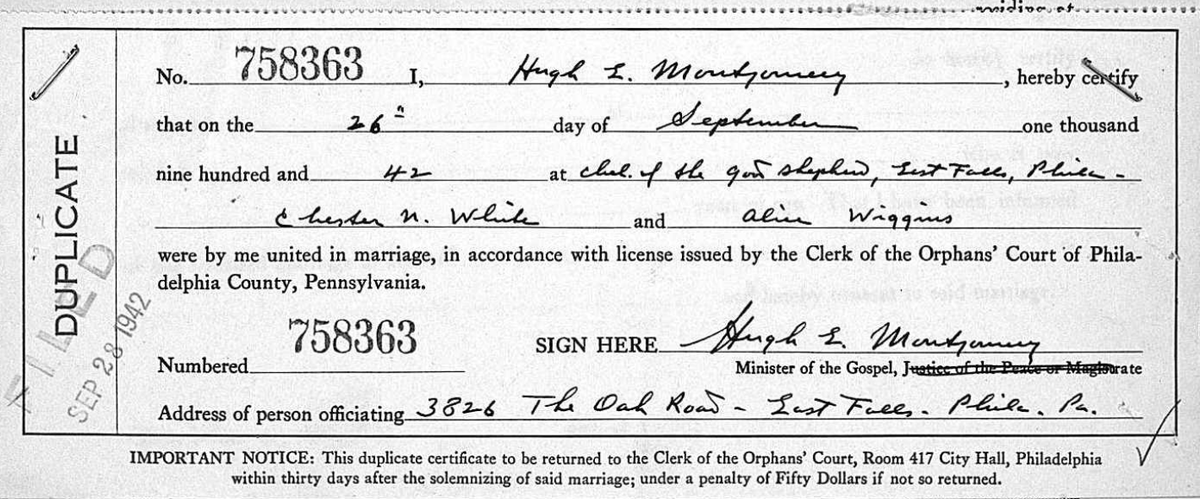 residing at
No. 758363 I, Hugh E. Montgomery, hereby certify
that on the 26th day of September one thousand
nine hundred and 42 at Chel. of the Good Shepherd, East Falls, Phila-
Chester N. White and Alice Wiggins
were by me united in marriage, in accordance with license issued by the Clerk of the Orphans' Court of Phila-
delphia County, Pennsylvania.
758363 SIGN HERE Hugh E. Montgomery
Numbered
Minister of the Gospel, Justice of the Peace or Magistrate
Address of person officiating 3826 The Oak Road - East Falls - Phila. Pa.
IMPORTANT NOTICE: This duplicate certificate to be returned to the Clerk of the Orphans' Court, Room 417 City Hall, Philadelphia
within thirty days after the solemnizing of said marriage; under a penalty of Fifty Dollars if not so returned.
DUPLICATE
FILED
SEP 28 1942